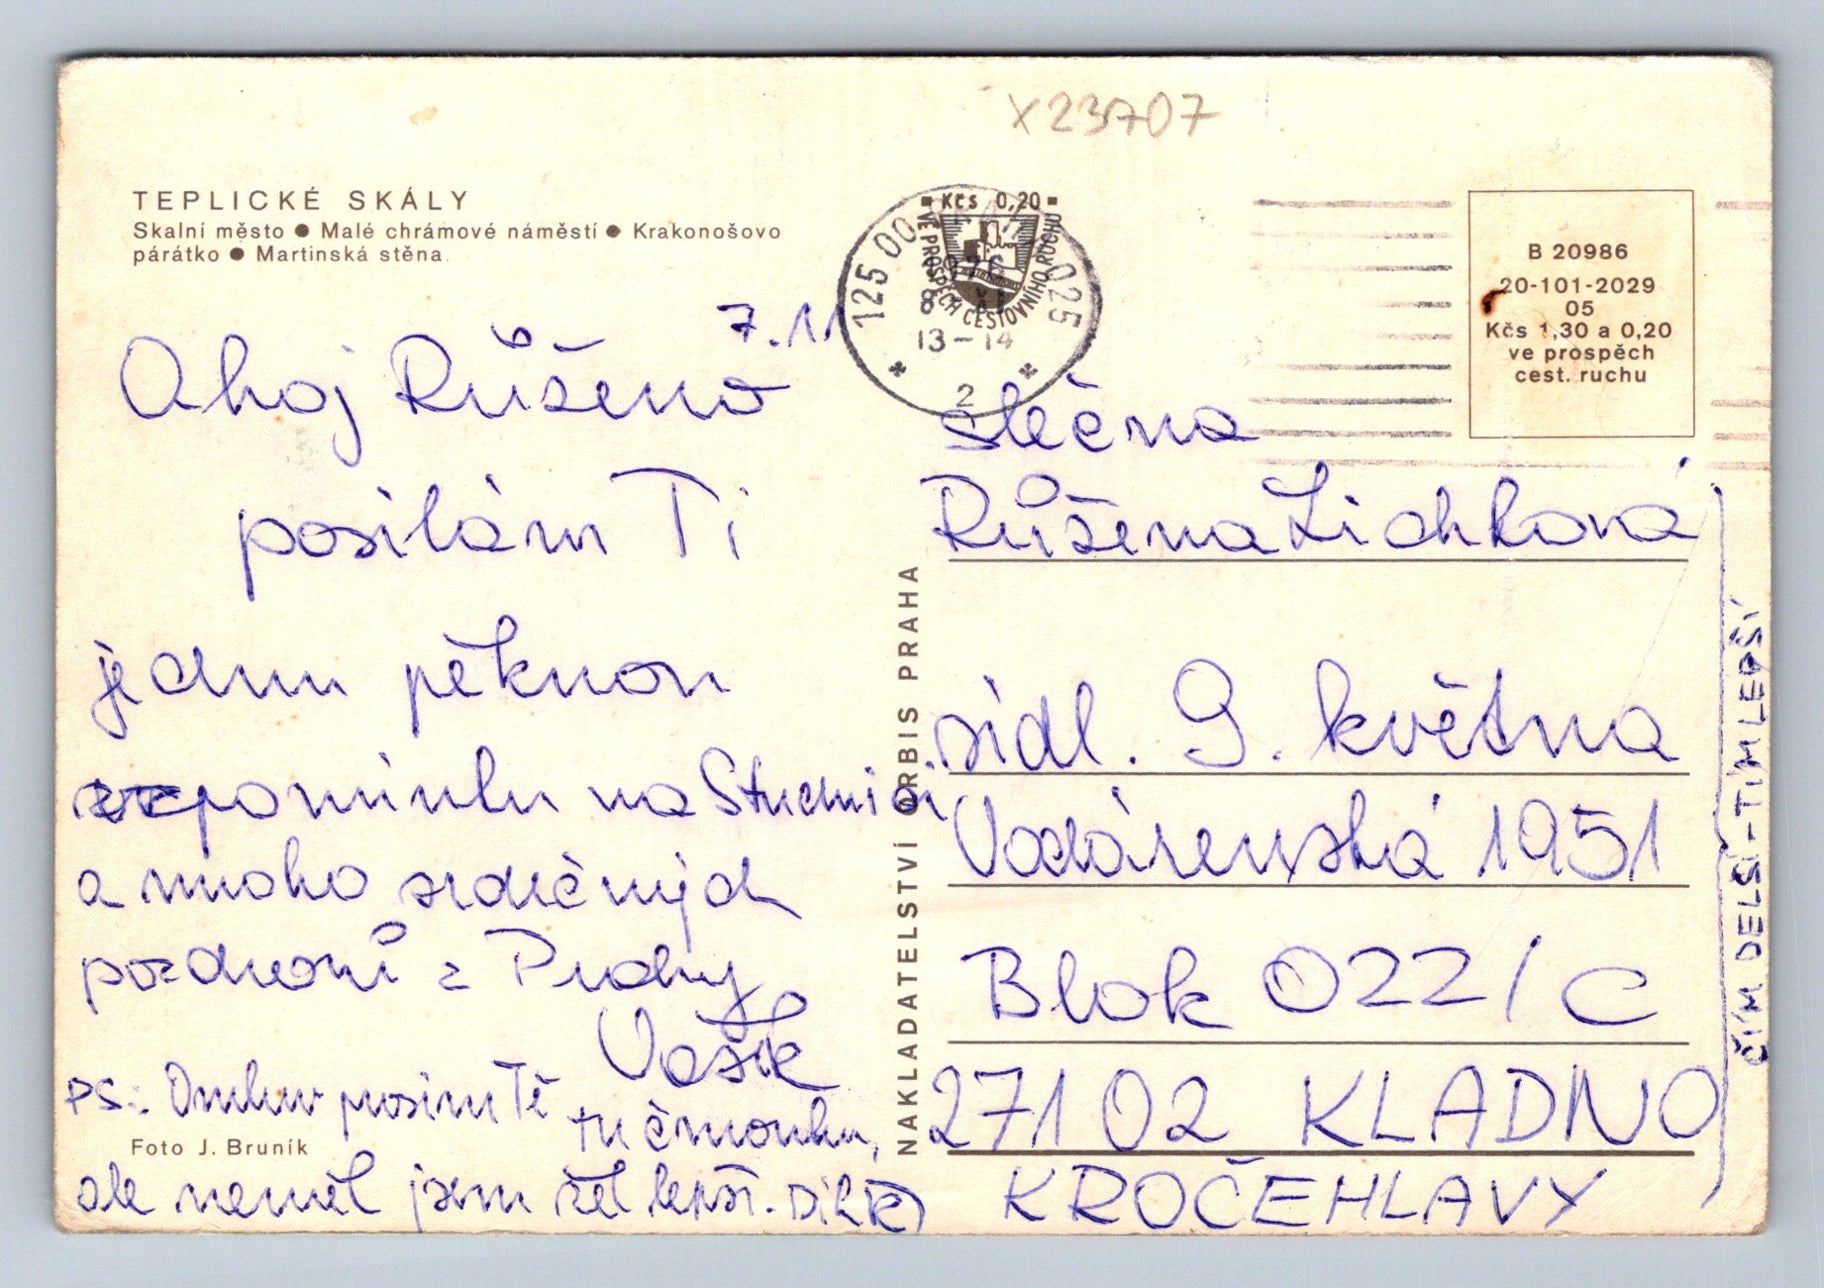 x23707
TEPLICKÉ SKÁLY
Skalní město ● Malé chrámové náměstí ● Krakonošovo
párátko ● Martinská stěna
7.11
Ahoj Růženo
posílám Ti
jednu pěknou
vzpomínku na
a mnoho srdečných
pozdravů z Prahy
Vašík
PS.: Omluv prosím Tě tu čmouhu,
Foto J. Bruník
ale neměl jsem lepší. Dík
NAKLADATELSTVÍ ORBIS PRAHA
Kčs 0,20
VE PROSPĚCH CESTOVNÍHO RUCHU
125 00
025
8
13-14
2
B 20986
20-101-2029
05
Kčs 1,30 a 0,20
ve prospěch
cest. ruchu
slečna
Růžena Lichková
sídl. 9. května
Vodárenská 1951
Blok 022/C
27102 KLADNO
KROČEHLAVY
ČÍM DELŠÍ - TÍM LEPŠÍ